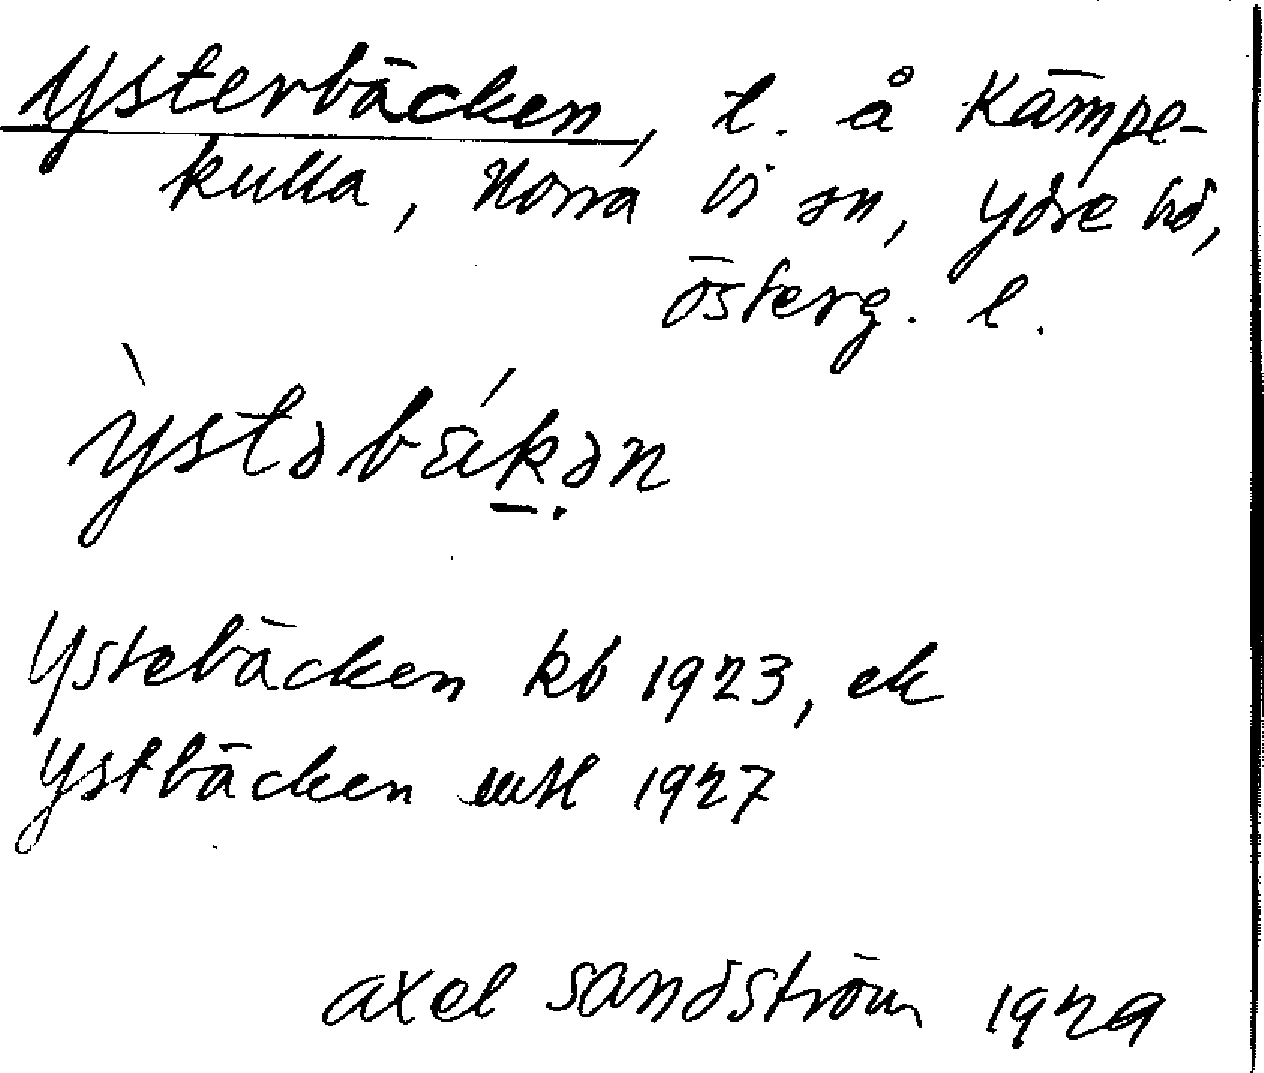 Ysterbäcken, t. å Kämpe-
kulla, Norra Vi sn, Ydre hd,
Österg. l.
ỳstəbäḱ̠ən
Ystebäcken kb 1923, ek
Ystbäcken mtl 1927
Axel Sandström 1929